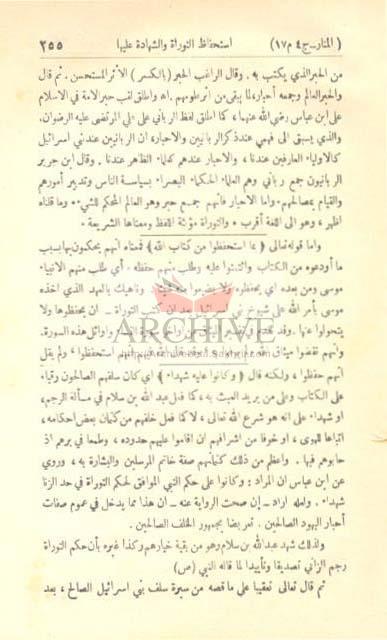 ( المنار_ج٤ م١٧ ) استحفاظ التوراة والشهادة عليها ٢٥٥
من الحبرالذي يكتب به . وقال الراغب الحبر (بالكسر) الاثر المستحسن . ثم قال
والحبر العالم وجمعه أحبار ، لما يبقى من اثر علومهم . اه واطلق لقب حبر الامة في الاسلام
على ابن عباس رضي الله عنهما ، كما اطلق لفظ الرباني على علي المرتضى عليه الرضوان.
والذي يسبق الى فهمي عند ذكر الربانيين والاحبار ، ان الربانيين عند بني اسرائيل
كالأولياء العارفين عندنا ، والاحبار عندهم كعلماء الظاهر عندنا . وقال ابن جرير
الربانيون جمع رباني وهم العلماء الحكماء البصراء بسياسة الناس وتدبير أمورهم
والقيام بمصالحهم. واما الاحبار فانهم جمع حبر وهو العالم المحكم للشيء . وما قلناه
اظهر ، وهو الى اللغة أقرب . والتوراة مؤنثة اللفظ ومعناها الشريعة .
واما قوله تعالى ﴿ بما استحفظوا من كتاب الله ﴾ فمعناه أنهم يحكمون بها بسبب
ما أودعوه من الكتاب وائتمنوا عليه وطلب منهم حفظه . أي طلب منهم الانبياء
موسى ومن بعده اي يحفظوه ولا يضيعوا منه شيئا . وناهيك بالعهد الذي اخذه
موسى بأمر الله على شيوخ بني اسرائيل بعد ان كتب التوراة _ ان يحفظوها ولا
يتحولوا عنها. وقد هذه السورة.
وانهم نقضوا ميثاق انهم استحفظوا ، ولم يقل
انهم حفظوا ، ولكنه قال ﴿ وكانوا عليه شهداء ﴾ اي كان سلفهم الصالحون رقباء
على الكتاب وعلى من يريد العبث به ، كما فعل عبد الله بن سلام في مسألة الرجم،
او شهداء على انه هو شرع الله تعالى ، لا كما فعل خلفهم من كتمان بعض احكامه ،
اتباعا للهوى ، او خوفا من اشرافهم ان اقاموا عليهم حدوده ، وطمعا في برهم اذ
حابوهم فيها . واعظم من ذلك كتمانهم صفة خاتم المرسلين والبشارة به ، وروي
عن ابن عباس ان المراد : وكانوا على حكم النبي الموافق لحكم التوراة في حد الزنا
شهداء . ولعله اراد _ إن صحت الرواية عنه _ ان هذا مما يدخل في عموم صفات
أحبار اليهود الصالحين . تعريضا بجمهور الخلف الصالحين .
ولذلك شهد عبدالله بن سلام وهو من بقية خيارهم وكذا غيره بأن حكم التوراة
رجم الزاني تصديقا وتأييدا لما قاله النبي (ص)
ثم قال تعالى تعقيبا على ما قصه من سيرة سلف بني اسرائيل الصالح ، بعد
ARCHIVE